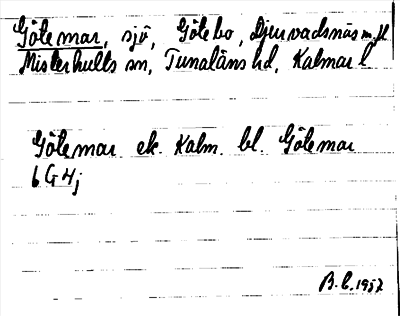 Götemar, sjö, Götebo, Djurvadsnäs m.fl
Misterhults sn, Tunaläns hd, Kalmar l
Götemar ek. Kalm. bl. Götemar
6 G 4j
B.L. 1957